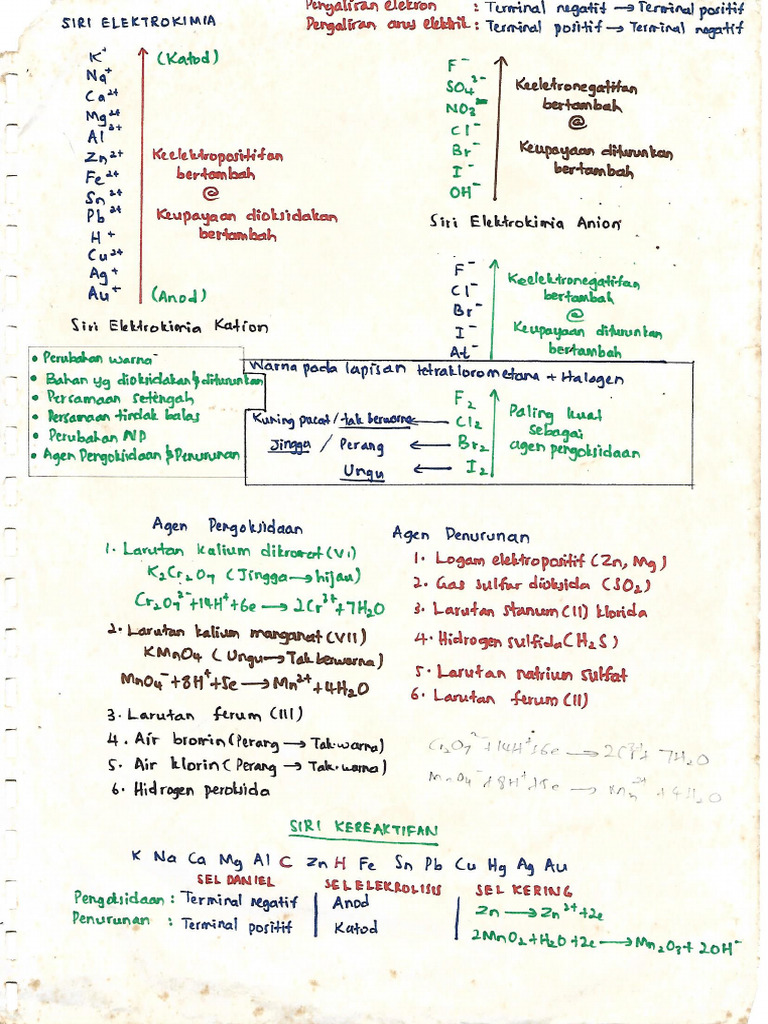 Pengaliran elektron : Terminal negatif → Terminal positif
SIRI ELEKTROKIMIA
Pengaliran arus elektrik : Terminal positif → Terminal negatif
K⁺ (Katod)
Na⁺
Ca²⁺
Mg²⁺
Al³⁺
Zn²⁺
Fe²⁺
Sn²⁺
Pb²⁺
H⁺
Cu²⁺
Ag⁺
Au⁺ (Anod)
Keelektropositifan
bertambah
@
Keupayaan dioksidakan
bertambah
Siri Elektrokimia Kation
F⁻
SO₄²⁻
NO₃⁻
Cl⁻
Br⁻
I⁻
OH⁻
Keeletronegatifan
bertambah
@
Keupayaan diturunkan
bertambah
Siri Elektrokimia Anion
F⁻
Cl⁻
Br⁻
I⁻
At⁻
Keelektronegatifan
bertambah
@
Keupayaan diturunkan
bertambah
• Perubahan warna
• Bahan yg dioksidakan & diturunkan
• Persamaan setengah
• Persamaan tindak balas
• Perubahan NP
• Agen Pengoksidaan & Penurunan
Warna pada lapisan tetraklorometana + Halogen
F₂
Kuning pucat / tak berwarna ← Cl₂
Jingga / Perang ← Br₂
Ungu ← I₂
Paling kuat
sebagai
agen pengoksidaan
Agen Pengoksidaan
1. Larutan kalium dikromat (VI)
K₂Cr₂O₇ (Jingga → hijau)
Cr₂O₇²⁻ + 14H⁺ + 6e → 2Cr³⁺ + 7H₂O
2. Larutan kalium manganat (VII)
KMnO₄ (Ungu → Tak berwarna)
MnO₄⁻ + 8H⁺ + 5e → Mn²⁺ + 4H₂O
3. Larutan ferum (III)
4. Air bromin (Perang → Tak warna)
5. Air klorin (Perang → Tak warna)
6. Hidrogen peroksida
Agen Penurunan
1. Logam elektropositif (Zn, Mg)
2. Gas sulfur dioksida (SO₂)
3. Larutan stanum (II) klorida
4. Hidrogen sulfida (H₂S)
5. Larutan natrium sulfat
6. Larutan ferum (II)
Cr₂O₇²⁻ + 14H⁺ + 6e → 2Cr³⁺ + 7H₂O
MnO₄⁻ + 8H⁺ + 5e → Mn²⁺ + 4H₂O
SIRI KEREAKTIFAN
K Na Ca Mg Al C Zn H Fe Sn Pb Cu Hg Ag Au
SEL DANIEL SEL ELEKROLISIS SEL KERING
Pengoksidaan : Terminal negatif Anod Zn → Zn²⁺ + 2e
Penurunan : Terminal positif Katod 2MnO₂ + H₂O + 2e → Mn₂O₃ + 2OH⁻